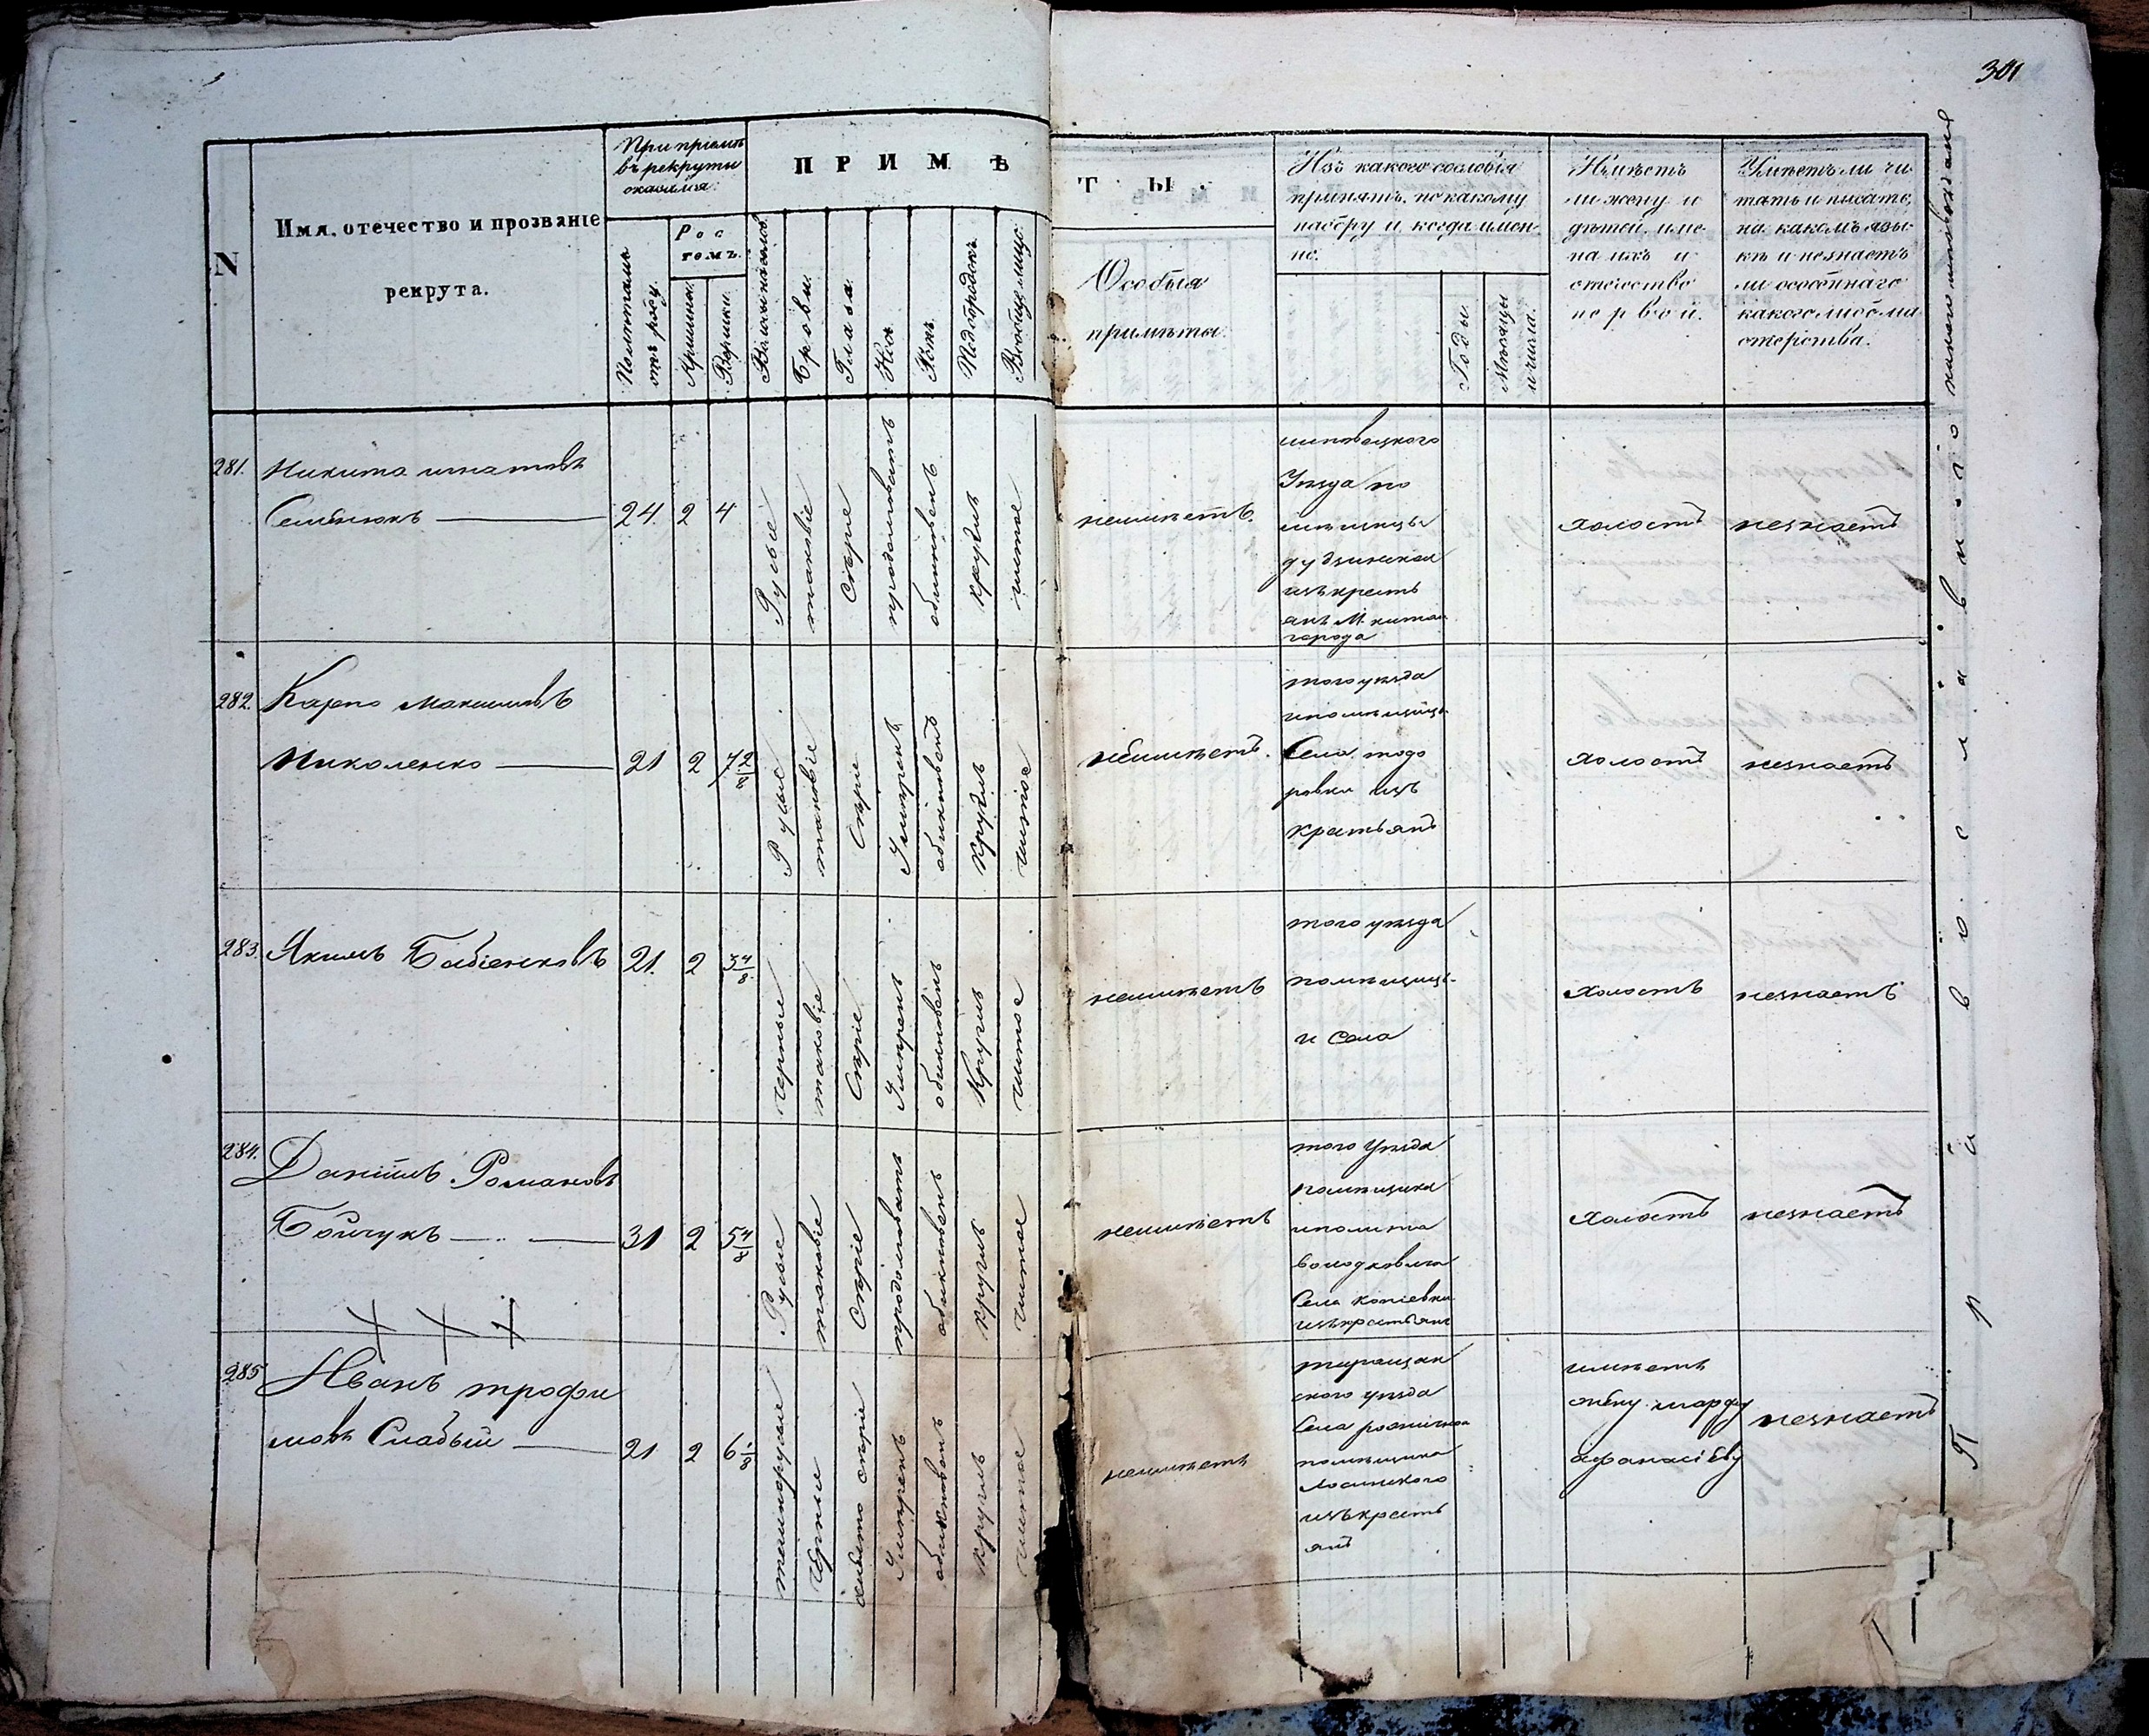 301
N
Имя, отечество и прозваніе
рекрута.
При пріемѣ
въ рекруты
оказался:
Полнымъ лѣтъ
отъ роду.
Рос
томъ.
Аршинъ.
Вершки.
ПРИМѢ
ТЫ.
Волосы на головѣ.
Брови.
Глаза.
Носъ.
Ротъ.
Подбородокъ.
Вообще лицо.
Особыя
примѣты.
Изъ какого сословія
принятъ, по какому
набору и когда имен-
но.
Годы.
Мѣсяцы
и числа.
Имѣетъ
ли жену и
дѣтей, име-
на ихъ и
отечество
первой.
Умѣетъ ли чи-
тать и писать,
на какомъ язы-
кѣ и не знаетъ
ли особеннаго
какого либо ма
стерства.
281.
Никита игнатовъ
Семенюкъ
24
2
4
Русые
таковіе
Сѣріе
продолговатъ
обикновенъ
круглъ
чистое
неимѣетъ.
Уѣзда по
мѣщицы
изъ крестъ
янъ М китай
города
холостъ
незнаетъ
282.
Карпо Максимовъ
Николенко
21
2
7 2/8
Русые
таковіе
Сѣріе
Умѣренъ
обикновенъ
круглъ
чистое
неимѣетъ.
того уѣзда
Села тодо
ровки изъ
крестьянъ
холостъ
незнаетъ
283.
Якимъ Бабіенковъ
21.
2
3 4/8
черные
таковіе
Сѣріе
Умѣренъ
обикновенъ
круглъ
чистое
неимѣетъ
того уѣзда
помѣщицы
и Села
холостъ
незнаетъ
284.
Даніилъ Романовъ
Бойчукъ
31
2
5 4/8
Русые
таковіе
Сѣріе
продолговатъ
обикновенъ
круглъ
чистое
неимѣетъ
того Уѣзда
помѣщика
иполита
володковича
Села копіевки
изъ крестьянъ
холостъ
незнаетъ
285
Иванъ трофи
мовъ Слабый
21
2
темнорусые
черные
свѣтло сѣріе
Умѣренъ
обикновенъ
круглъ
чистое
неимѣетъ
таращан
ского уѣзда
Села
помѣщика
изъ крестъ
янъ
имѣетъ
жену марфу
афанасіеву
незнаетъ
православного